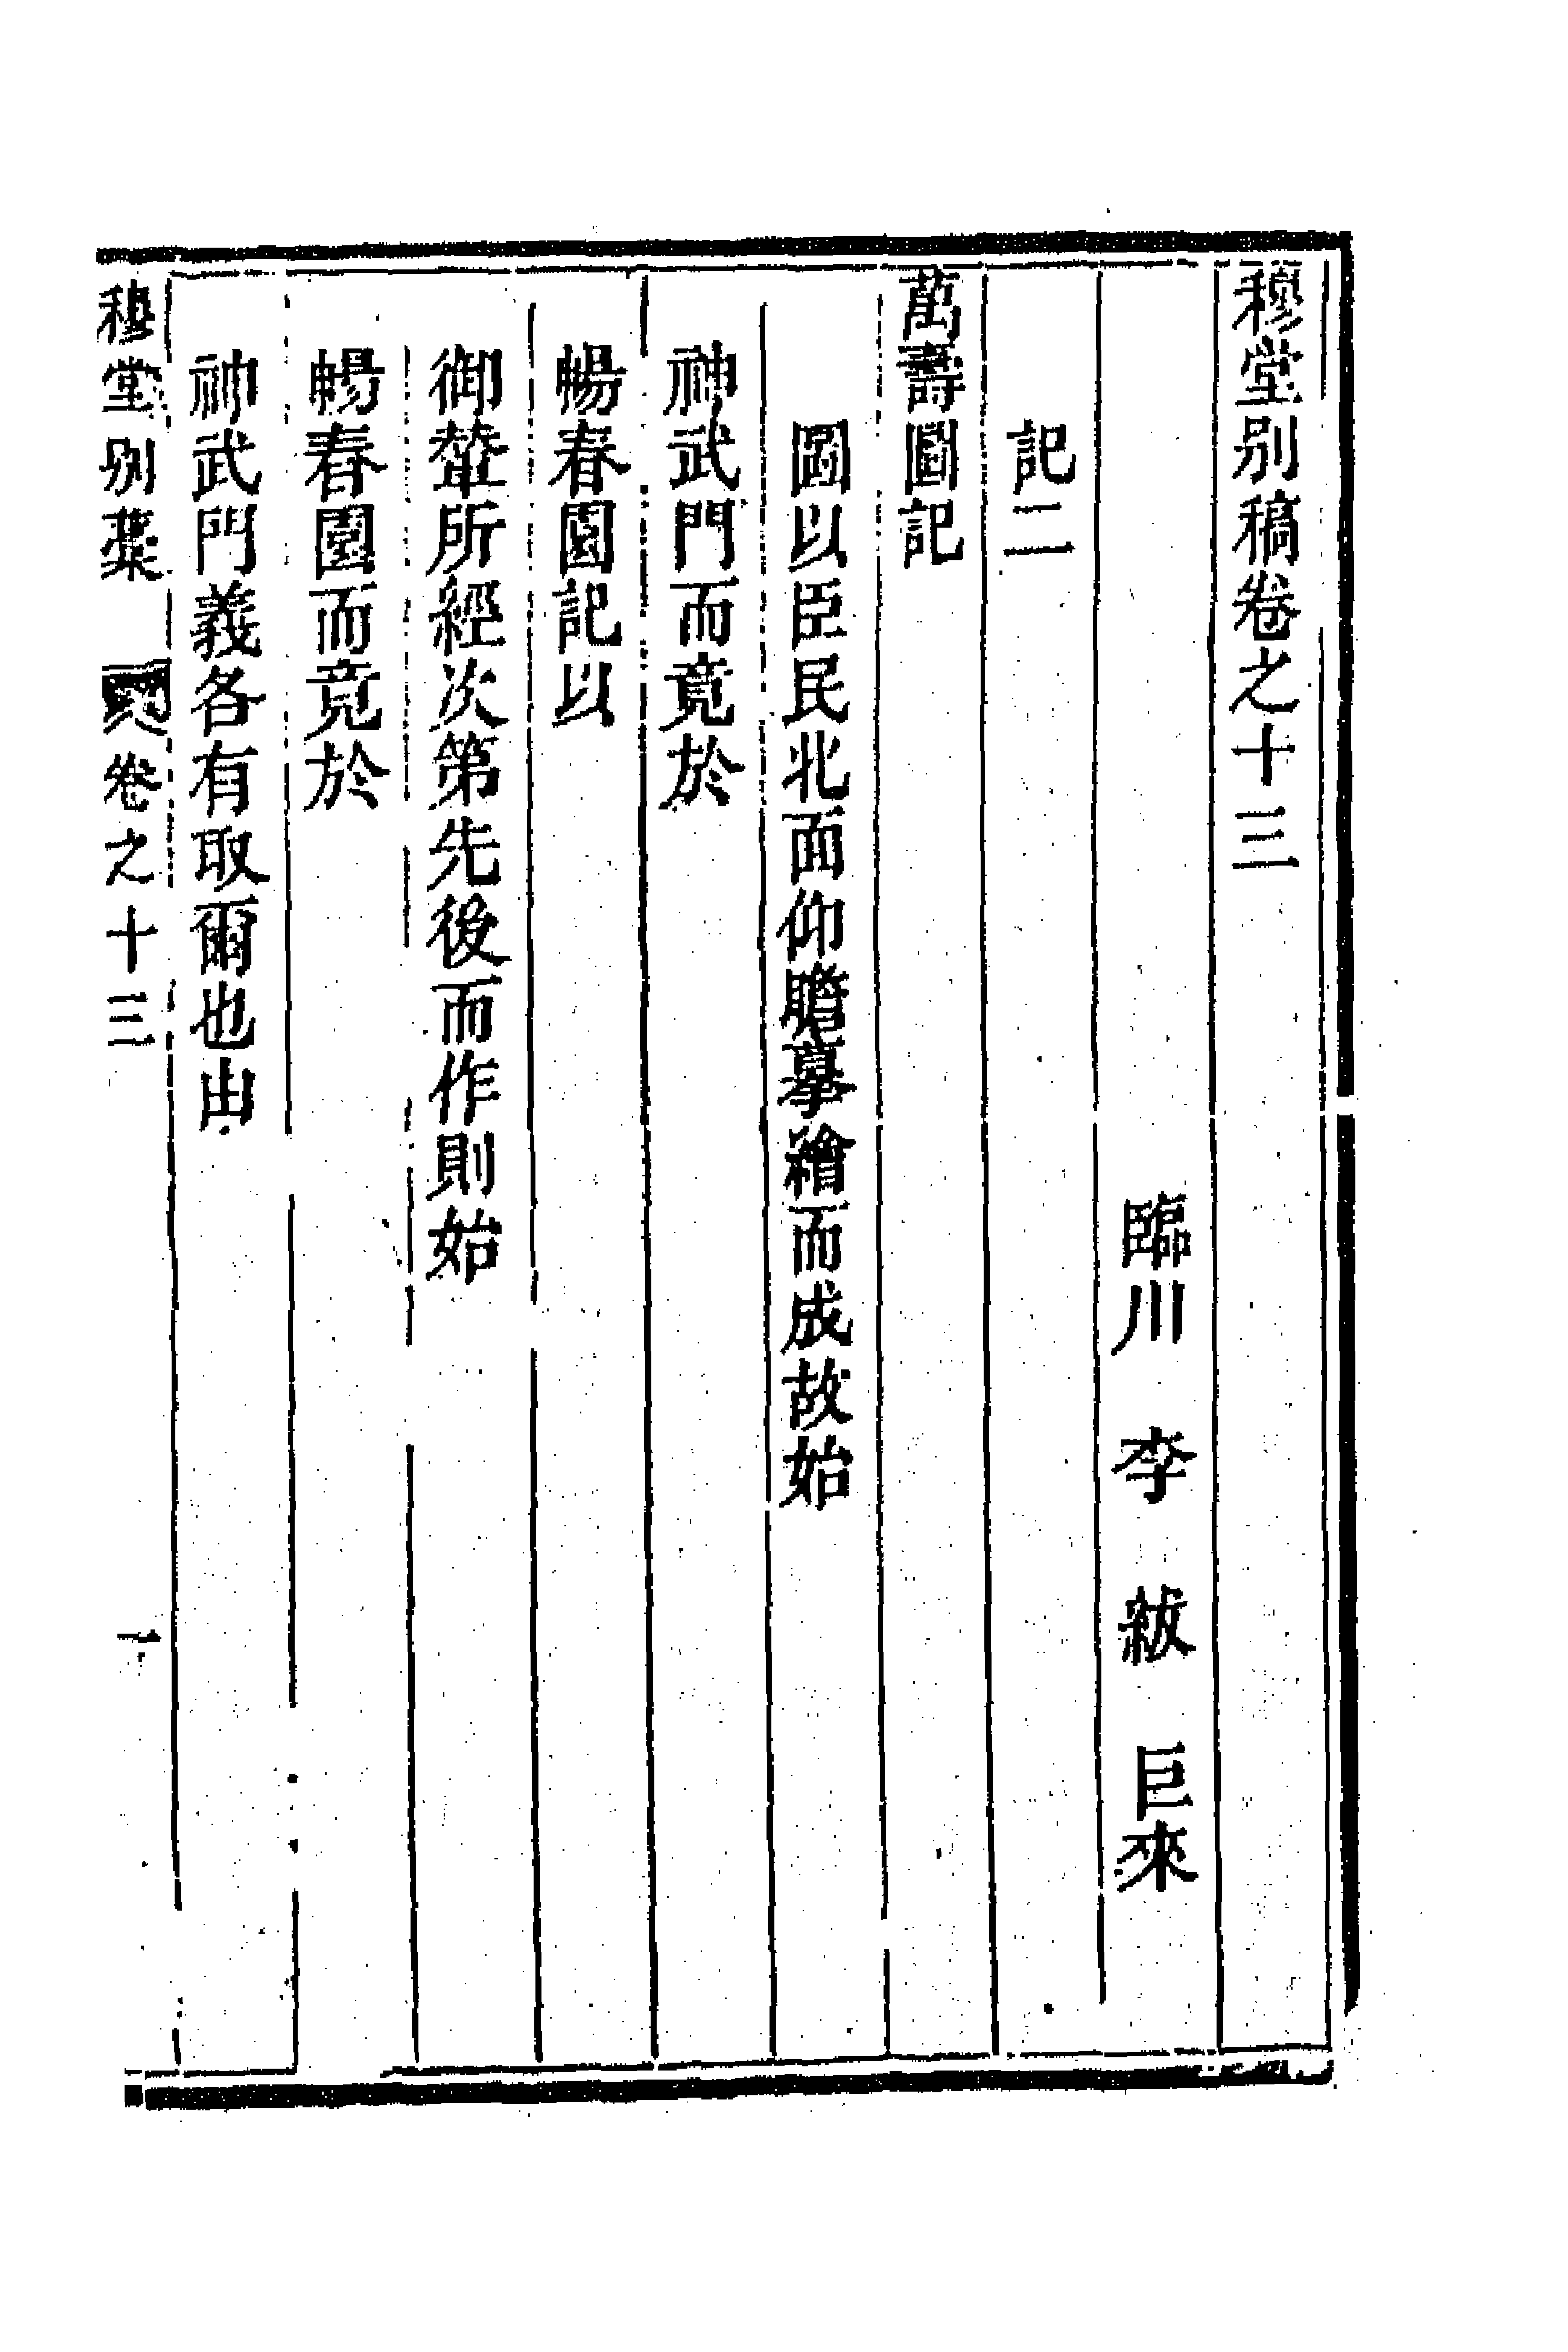 穆堂别稿卷之十三
臨川 李 紱 巨來
記二
萬壽圖記
圖以臣民北面仰瞻摹繪而成故始
神武門而竟於
暢春園記以
御輦所經次第先後而作則始
暢春園而竟於
神武門義各有取爾也由
穆堂别藁 卷之十三 一